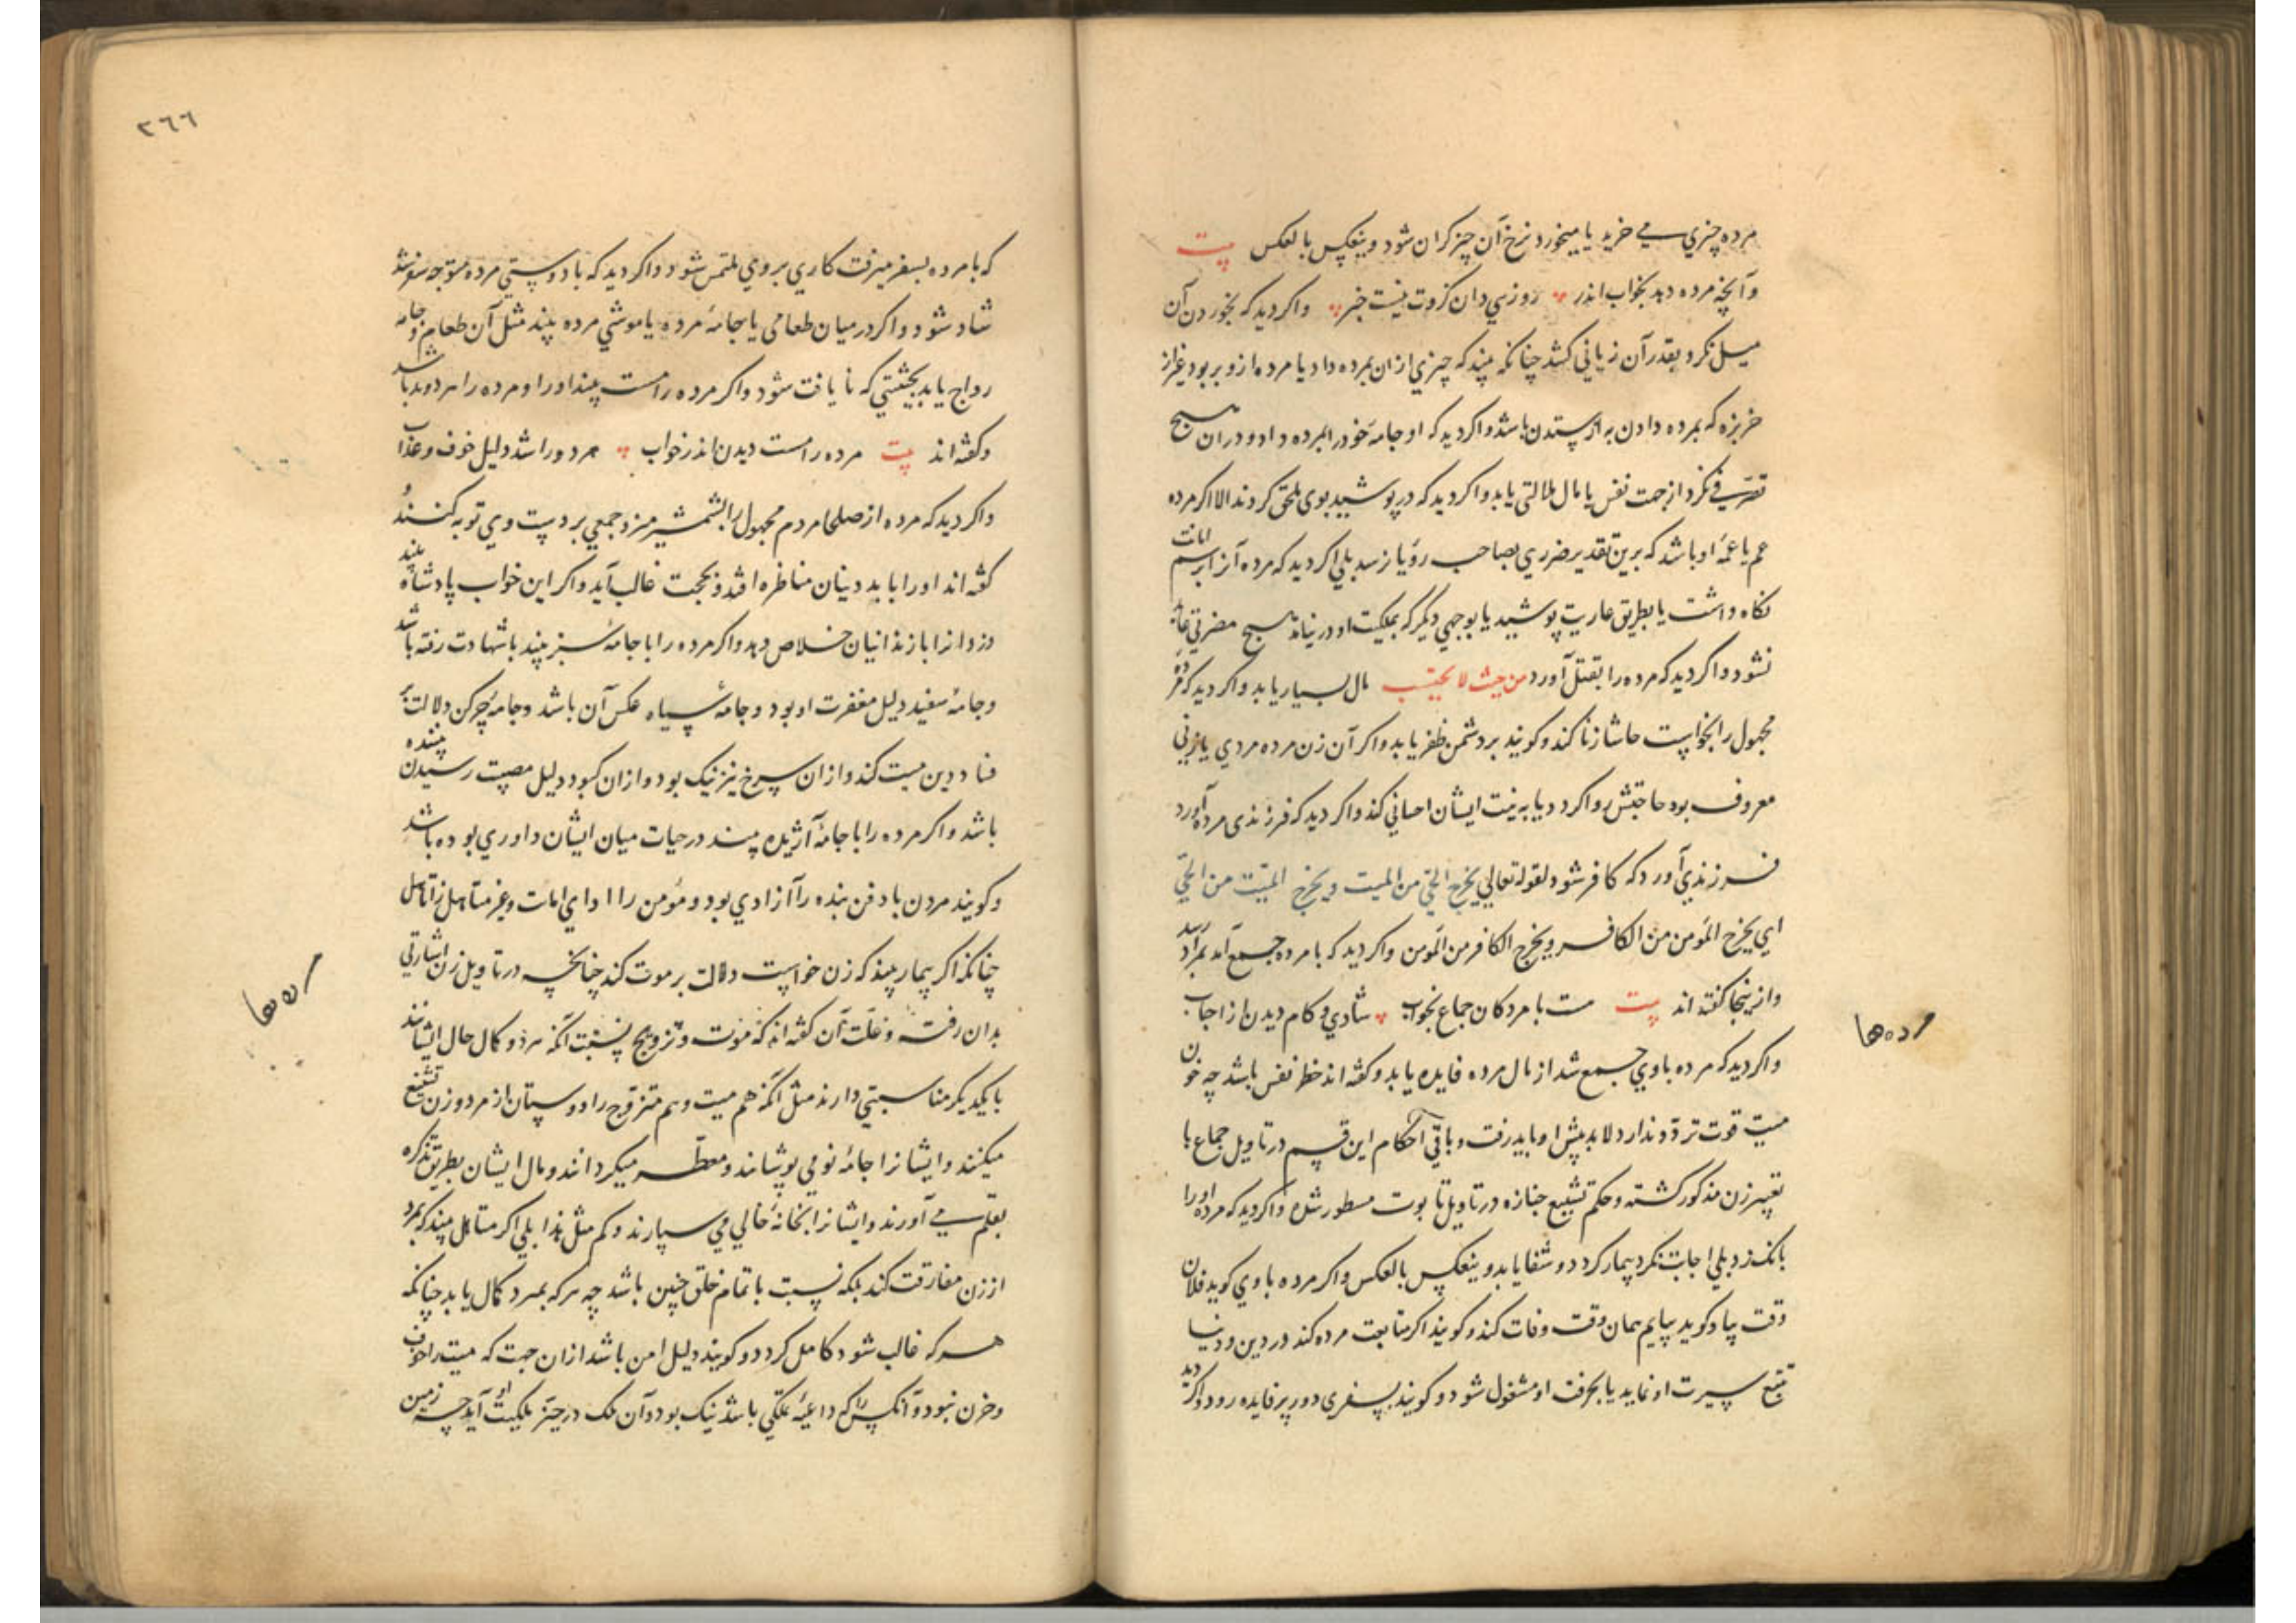 مرده چیزي مي خرید یا میخورد نرخ آن چیز کران شود وینعکس بالعکس بیت
وآنچه مرده دهد بخواب اندر روزیي دان کزوت نیست خبر واکر دید که بخوردن آن
میل نکرد بقدر آن زیانی کشد چنانکه بیند که چیزي ازان بمرده داد یا مرده ازو بربود غیر از
خربزه که بمرده دادن به از ستدن باشد واکر دید که او جامهٔ خود را بمرده داد و دران هیچ
تصرفي نکرد از جهت نفس یا مال ملالتی یابد واکر دید که درپوشید بوی ملحق کردند الا اکر مرده
عم یا عمهٔ او باشد که برین تقدیر ضرري بصاحب رؤیا نرسد بلي اکر دید که مرده آنرا برسم امانت
نکاه داشت یا بطریق عاریت پوشید یا بوجهي دیکر که بملکیت او در نیاید هیچ مضرتي
نشود واکر دید که مرده را بقتل آورد من حیث لا یحتسب مال بسیار یابد واکر دید که مرده
مجهول را بخواست حاشا زنا کند وکویند بر دشمن ظفر یابد واکر آن زن مرده مردي یا زنی
معروف بود حاجتش روا کردد یا به نیت ایشان احسانی کند واکر دید که فرزندی مرده آورد
فرزندي آورد که کافر شود لقوله تعالي یخرج الحي من المیت ویخرج المیت من الحي
اي یخرج المؤمن من الکافر ویخرج الکافر من المؤمن واکر دید که با مرده جمع آمد بمراد رسد
وازینجا کفته اند بیت هست با مردکان جماع بخواب شادي و کام دیدن از احباب
واکر دید که مرده با وي جمع شد از مال مرده فایده یابد وکفته اند خطر نفس باشد چه خون
میت قوت تردد ندارد لابد پیش او باید رفت وباقي احکام این قسم در تاویل جماع با
تعبیر زن مذکور کشته وحکم تشییع جنازه در تاویل تابوت مسطور شده واکر دید که مرده او را
بانک زد بلي اجابت نکرد بیمار کردد وشفا یابد وینعکس بالعکس واکر مرده با وي کوید فلان
وقت بیا وکوید بیایم همان وقت وفات کند وکویند اکر متابعت مرده کند در دین ودنیا
تتبع سیرت او نماید یا بحرفت او مشغول شود وکویند بسفری دور پر فایده رود واکر دید
مردها
٢٦٦
که با مرده بسفر میرفت کاري بر وي ملتمس شود واکر دید که با دوستي مرده متوجه سفر شد
شاد شود واکر در میان طعامی یا جامهٔ مرده یا موشي مرده بیند مثل آن طعام وجامه
رواج یابد بحیثیتي که نایافت شود واکر مرده را مست بیند او را ومرده را هر دو بد باشد
وکفته اند بیت مرده را مست دیدن اندر خواب هر دو را شد دلیل خوف وعذاب
واکر دید که مرده از صلحا مردم مجهول را بشمشیر میزد وجمعي بر دست وي توبه کنند و
کفته اند او را با بد دینان مناظره افتد وبحجت غالب آید واکر این خواب پادشاه بیند
دزدانرا با زندانیان خلاص دهد واکر مرده را با جامهٔ سبز بیند با شهادت رفته باشد
وجامهٔ سفید دلیل مغفرت او بود وجامهٔ سیاه عکس آن باشد وجامهٔ چرکن دلالت بر
فساد دین میت کند وازان سرخ نیز نیک بود وازان کبود دلیل مصیبت رسیدن بیننده
باشد واکر مرده را با جامهٔ آژیده بیند در حیات میان ایشان داوري بوده باشد
وکویند مردن با دفن بنده را آزادي بود ومؤمن را ادا اي امانت وغیر متاهل را تاهل
چنانکه اکر بیمار بیند که زن خواست دلالت بر موت کند چنانچه در تاویل زن اشارتي
بدان رفته وعلت آن کفته اند که موت وتزویج بنسبت آنکه هر دو کمال حال ایشانند
با یکدیکر مناسبتي دارند مثل آنکه هم میت وهم متزوج را دوستان از مرد وزن تشییع
میکنند وایشانرا جامهٔ نو مي پوشانند ومعطر میکردانند ومال ایشان بطریق تذکره
بقلم مي آورند وایشانرا بخانهٔ خالي مي سپارند وکم مثل هذا بلي اکر متاهل بیند که بمرد
از زن مفارقت کند بلکه نسبت با تمام خلق چنین باشد چه هر که بمرد کمال یابد چنانکه
هر که غالب شود کامل کردد وکویند دلیل امن باشد ازان جهت که میت را خوف
وحزن نبود وآنکس را که داعیهٔ ملکي باشد نیک بود وآن ملک در حیز ملکیت او آید چه زمین